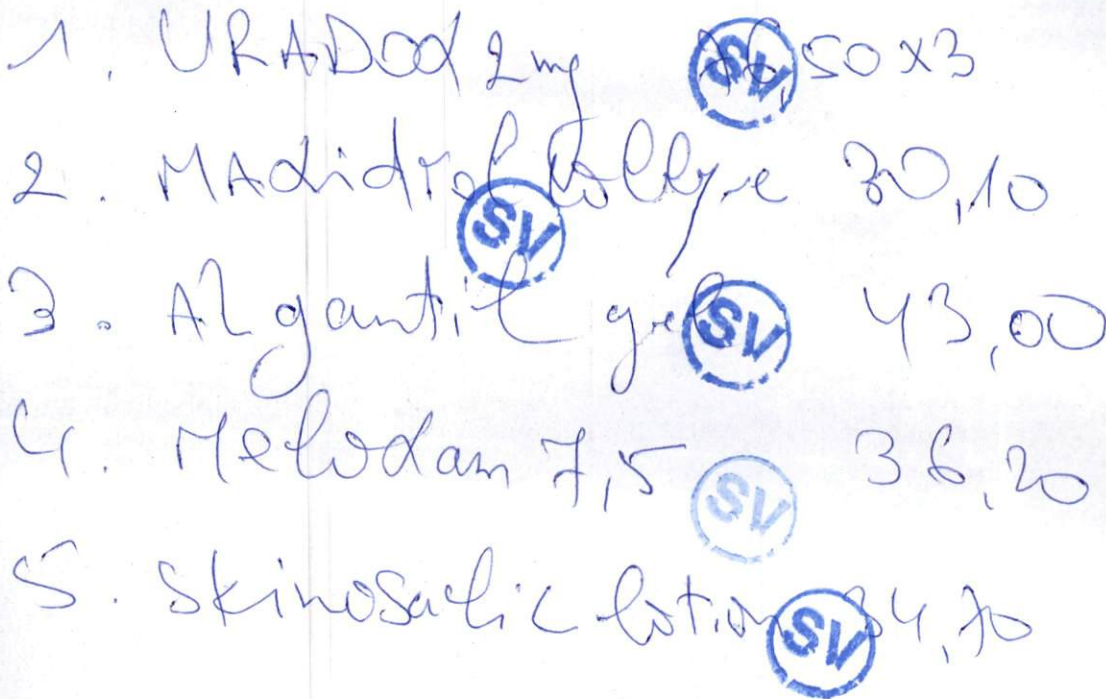 1. URADOX 2mg SV ,50 x3
2. MAXidrol Collyre 30,10
SV
3. Algantil gel SV 43,00
4. Meloxam 7,5 SV 36,20
5. Skinosalic lotion SV 34,70